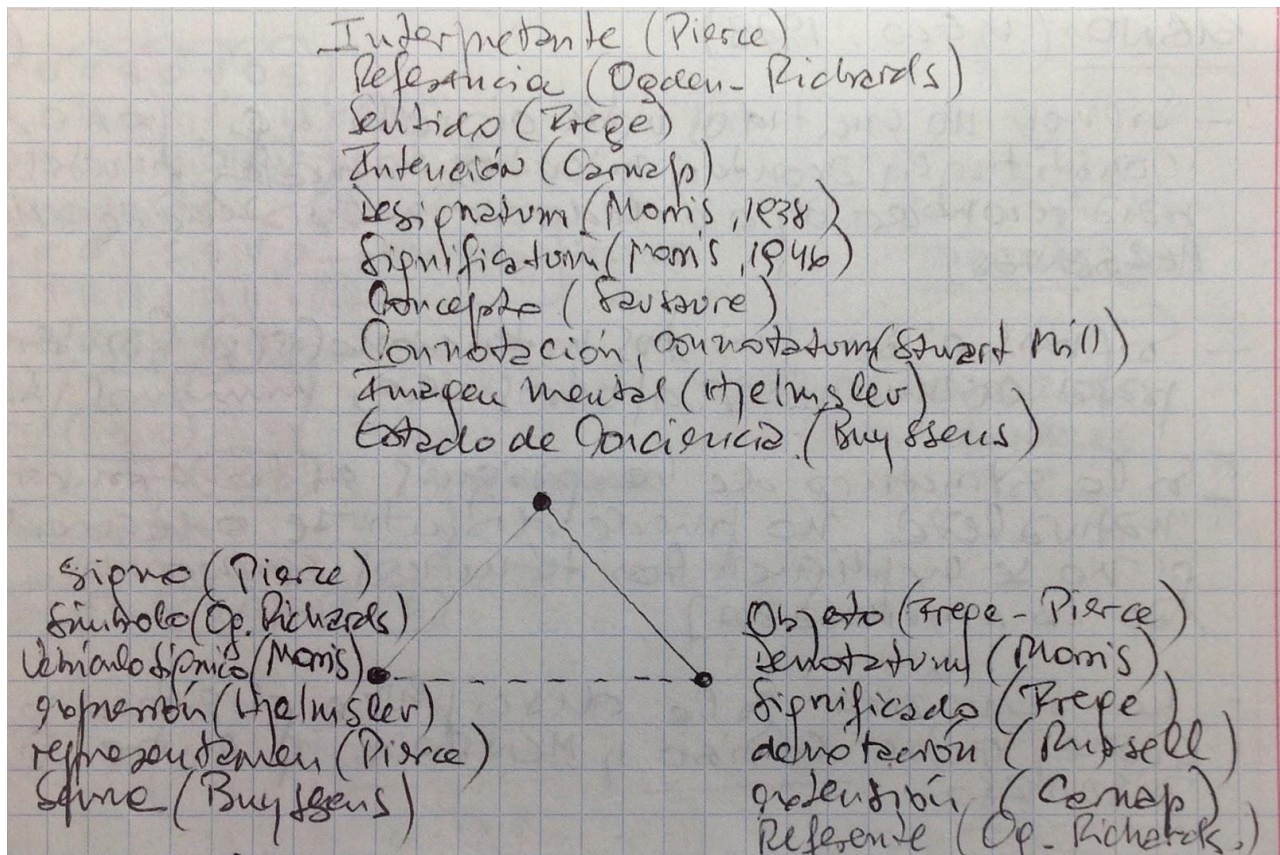 Interpretante (Pierce)
Referencia (Ogden-Richards)
Sentido (Frege)
Intención (Carnap)
Designatum (Morris, 1938)
Significatum (Morris, 1946)
Concepto (Saussure)
Connotación, connotatum (Stuart Mill)
Imagen mental (Hjelmslev)
Estado de Conciencia (Buyssens)
Signo (Pierce)
Símbolo (Og. Richards)
Vehículo sígnico (Morris)
expresión (Hjelmslev)
representamen (Pierce)
Seme (Buyssens)
Objeto (Frege-Pierce)
Denotatum (Morris)
Significado (Frege)
denotación (Russell)
extensión (Carnap)
Referente (Og. Richards.)